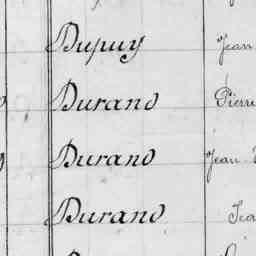 Dupuy Jean
Durand Pierre
Durand Jean
Durand